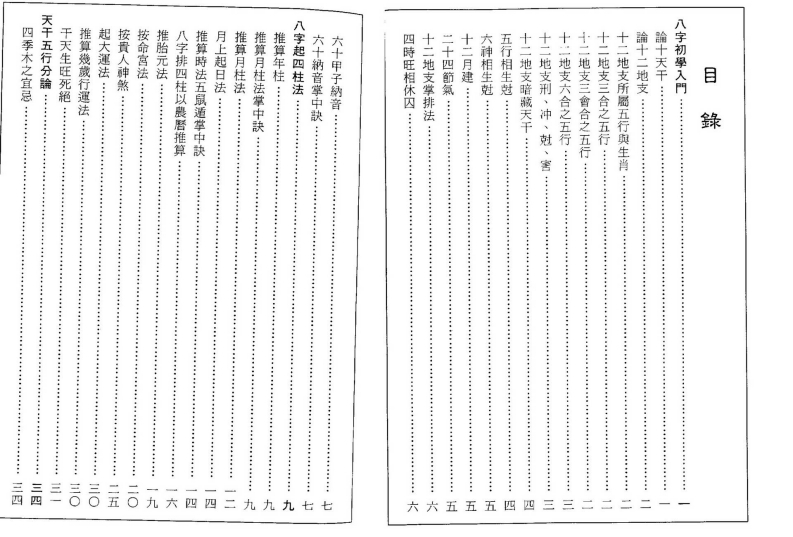 目錄
八字初學入門……一
論十天干……一
論十二地支……二
十二地支所屬五行與生肖……二
十二地支三合之五行……二
十二地支三會之五行……二
十二地支六合之五行……三
十二地支刑、冲、尅、害……三
十二地支暗藏天干……四
五行相生尅……四
六神相生尅……五
十二月建……五
二十四節氣……五
十二地支掌排法……六
四時旺相休囚……六
六十甲子納音……七
六十納音掌中訣……七
八字起四柱法……九
推算年柱……九
推算月柱法掌中訣……九
推算月柱法……一二
月上起日法……一四
推算時法五鼠遁掌中訣……一四
八字排四柱以農曆推算……一六
推胎元法……一九
按命宮法……二〇
按貴人神煞……二五
起大運法……三〇
推算幾歲行運法……三〇
干天生旺死絕……三一
天干五行分論……三四
四季木之宜忌……三四